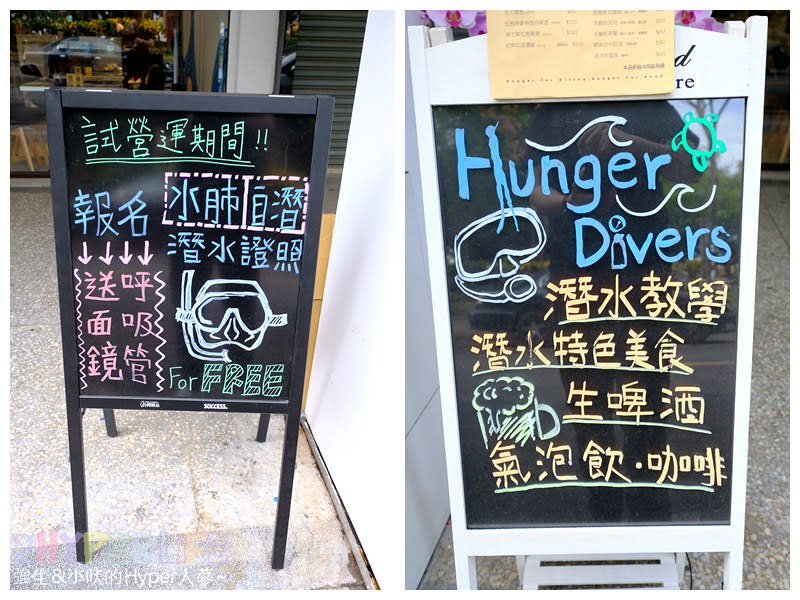 試營運期間!!
報名 水肺 自潛
潛水證照
↓↓↓↓
送呼
面吸
鏡管
For FREE
SUCCESS.
Hunger For Diving.Hunger For Food
Hunger
Divers
潛水教學
潛水特色美食
生啤酒
氣泡飲·咖啡
強生&小吠的Hyper人蔘~